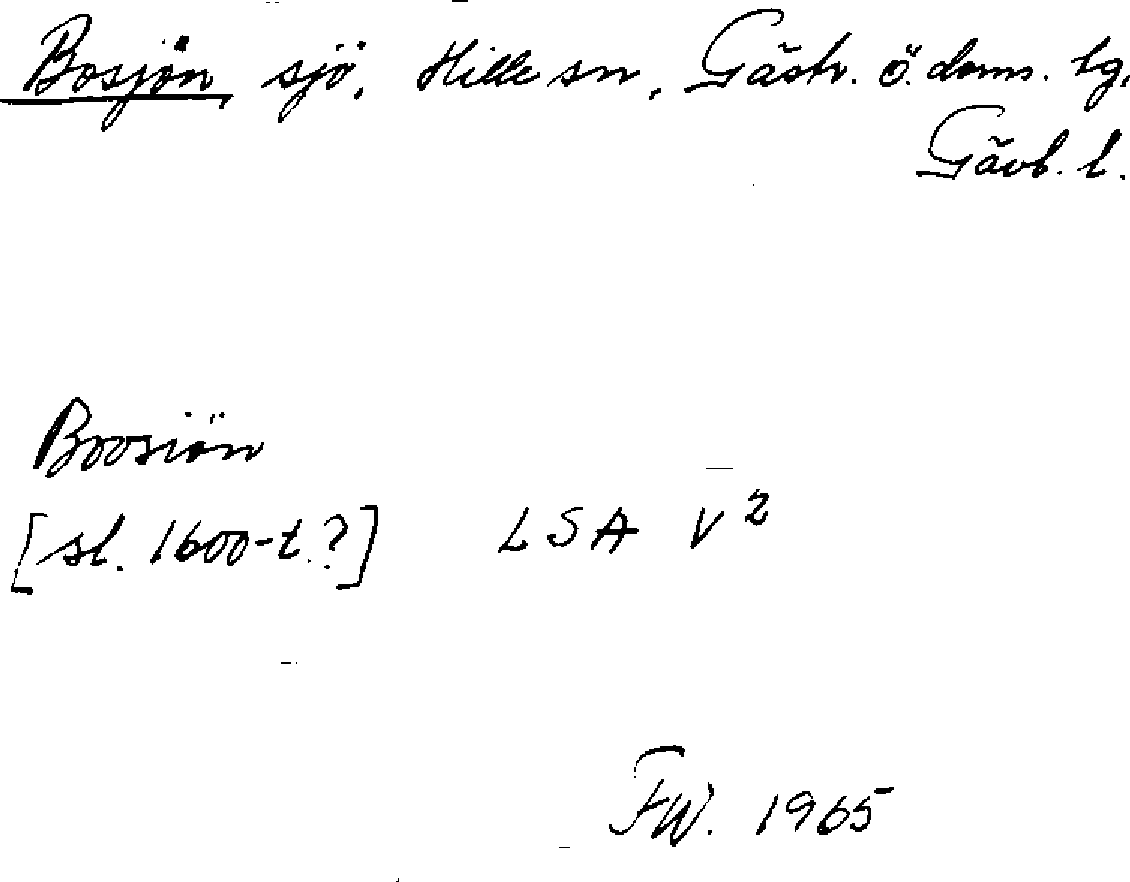 Bosjön, sjö, Hille sn, Gästr. ö. doms. lg,
Gävb. l.
Boosiön
[sl. 1600-t.?] LSA V²
FW. 1965